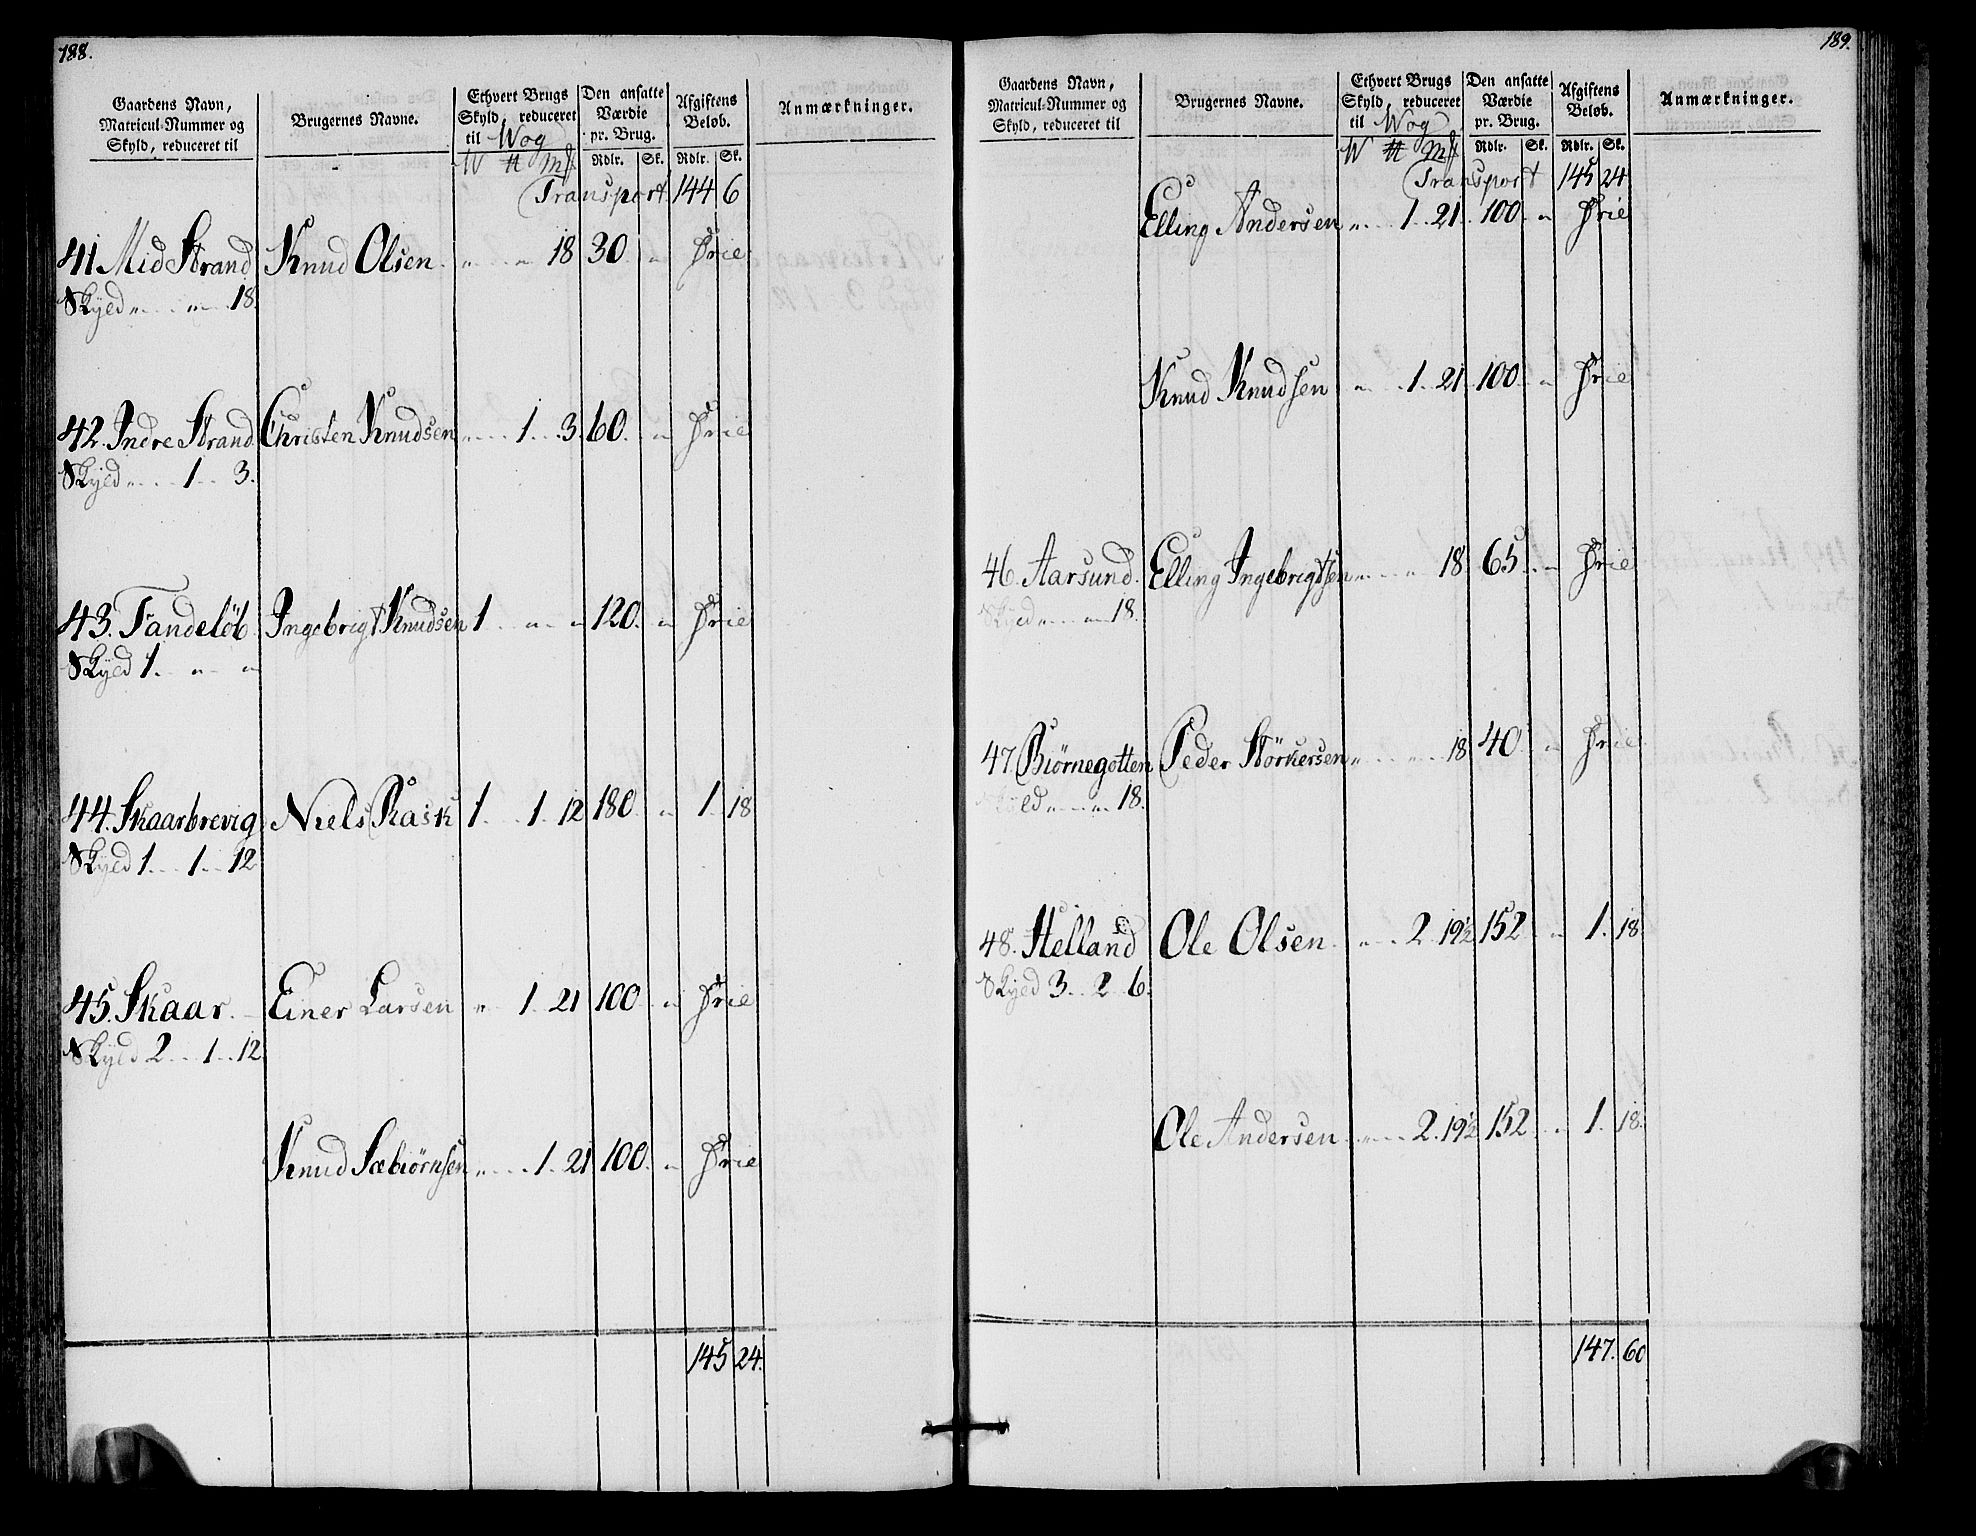 188.
Gaardens Navn, Matricul-Nummer og Skyld, reduceret til
Brugernes Navne.
Ethvert Brugs Skyld, reduceret til Wog
Den ansatte Værdie pr. Brug.
Afgiftens Beløb.
Anmærkninger.
W ℔ Mk
Rdlr. Sk. Rdlr. Sk.
Transport 144 6
41. Mid Strand Knud Olsen " " 18 30 " Frie
Skyld " " 18.
42. Indre Strand Christen Knudsen " 1 3. 60. " Frie
Skyld " 1 3.
43. Tandeløb Ingebrigt Knudsen 1 " " 120. " Frie
Skyld 1. " "
44. Skaarbrevig Niels Rask 1 1 12 180 " 1. 18
Skyld 1 1 12
45. Skaar Einer Larsen " 1 21 100 " Frie
Skyld 2 1 12
Knud Sæbiörnsen " 1 21 100. " Frie
145 24.
189.
Gaardens Navn, Matricul-Nummer og Skyld, reduceret til
Brugernes Navne.
Ethvert Brugs Skyld, reduceret til Wog
Den ansatte Værdie pr. Brug.
Afgiftens Beløb.
Anmærkninger.
W ℔ Mk
Rdlr. Sk. Rdlr. Sk.
Transport 145 24
Elling Andersen " 1 21 100 " Frie
Knud Knudsen " 1 21 100 " Frie
46. Aarsund Elling Ingebrigtsen " " 18 65 " Frie
Skyld " " 18.
47. Biörnegotten Peder Störkersen " " 18 40 " Frie
Skyld " " 18.
48. Helland Ole Olsen " 2 19½ 152 " 1. 18
Skyld 3 2 6.
Ole Andersen " 2. 19½ 152 " 1. 18.
147. 60